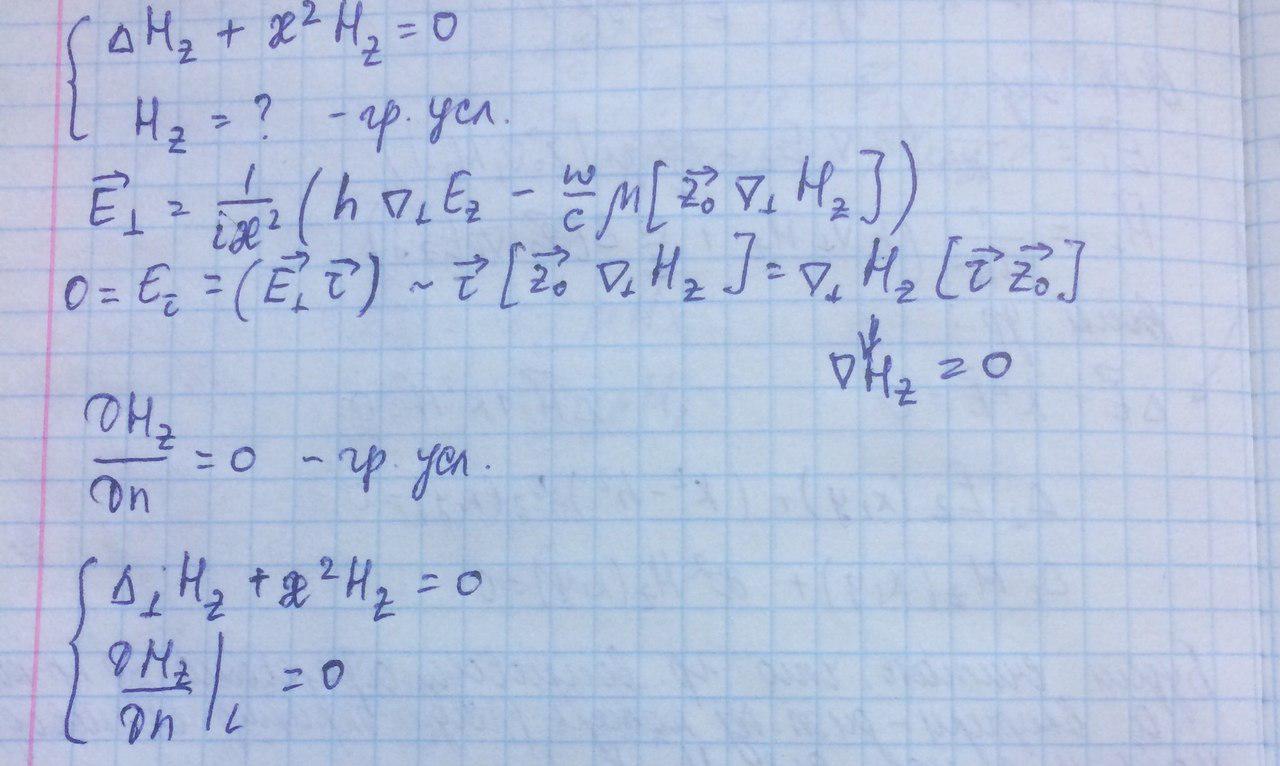 ΔH_z + æ² H_z = 0
H_z = ? - гр. усл.
E⃗_⊥ = 1/(iæ²) (h ∇_⊥ E_z - ω/c μ [z⃗₀ ∇_⊥ H_z])
0 = E_τ = (E⃗_⊥ τ⃗) ~ τ⃗ [z⃗₀ ∇_⊥ H_z] = ∇_⊥ H_z [τ⃗ z⃗₀]
↓
∇H_z = 0
∂H_z/∂n = 0 - гр. усл.
Δ_⊥ H_z + æ² H_z = 0
∂H_z/∂n |_L = 0